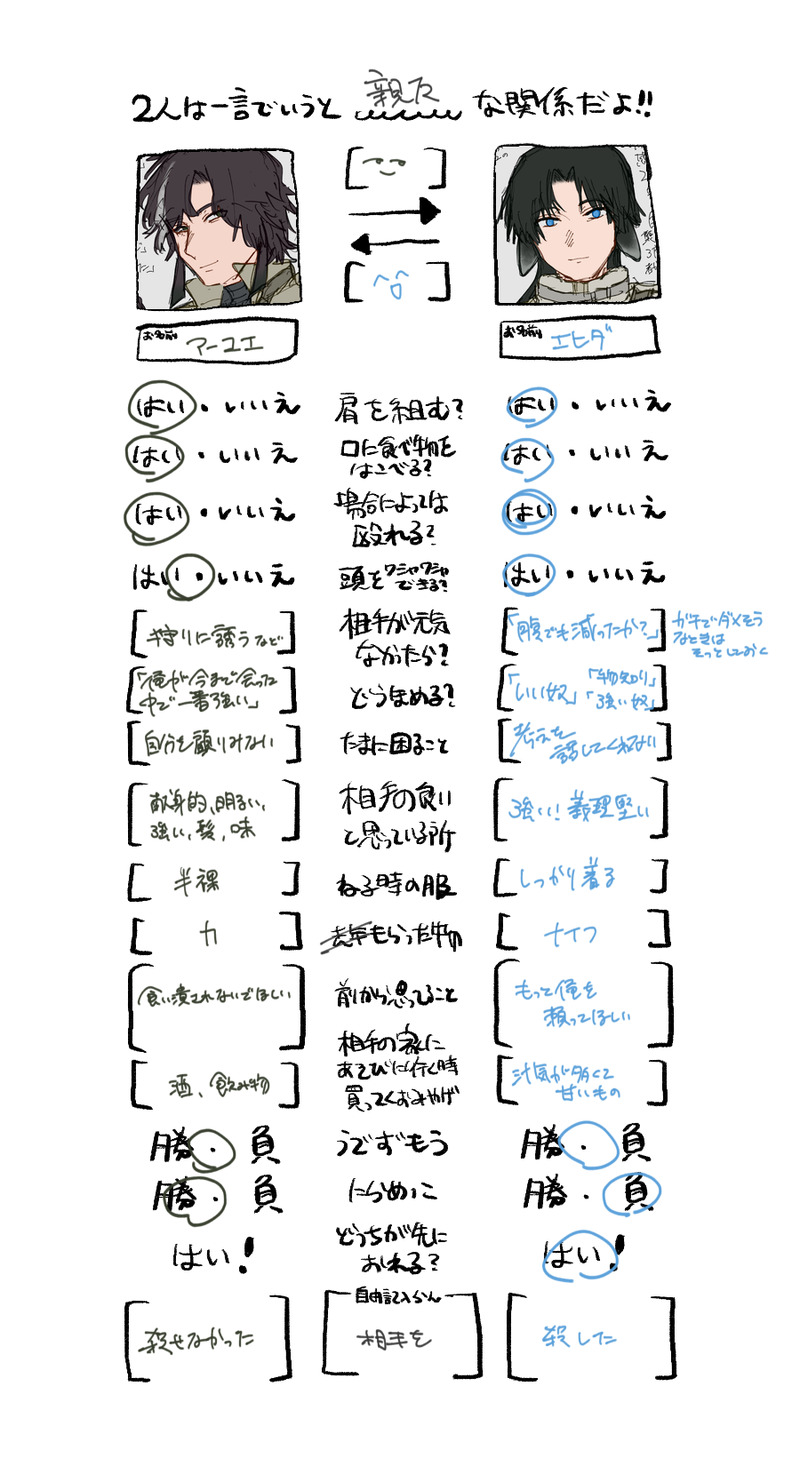 2人は一言でいうと 親友 な関係だよ!!
お名前 アーユエ
お名前 エヒダ
はい・いいえ 肩を組む? はい・いいえ
はい・いいえ 口に食べ物を はい・いいえ
はこべる?
はい・いいえ 場合によっては はい・いいえ
殴れる?
はい・いいえ 頭をワシャワシャできる? はい・いいえ
狩りに誘うなど 相手が元気 「腹でも減ったか?」 ガチでダメそう
なかったら? なときは
そっとしておく
「俺が今まで会った どうほめる? 「いい奴」「物知り」
中で一番強い」 「強い奴」
自分を顧りみない たまに困ること 考えを
話してくれない
献身的、明るい、 相手の良い 強い!義理堅い
強い、髪、味 と思っている所
半裸 ねる時の服 しっかり着る
力 去年もらった物 ナイフ
食い潰されないでほしい 前から思ってること もっと俺を
頼ってほしい
相手の家に
酒、飲み物 あそびに行く時 汁気が多くて
買ってくおみやげ 甘いもの
勝・負 うでずもう 勝・負
勝・負 にらめっこ 勝・負
どっちが先に
はい! おれる? はい!
自由記入らん
殺せなかった 相手を 殺した